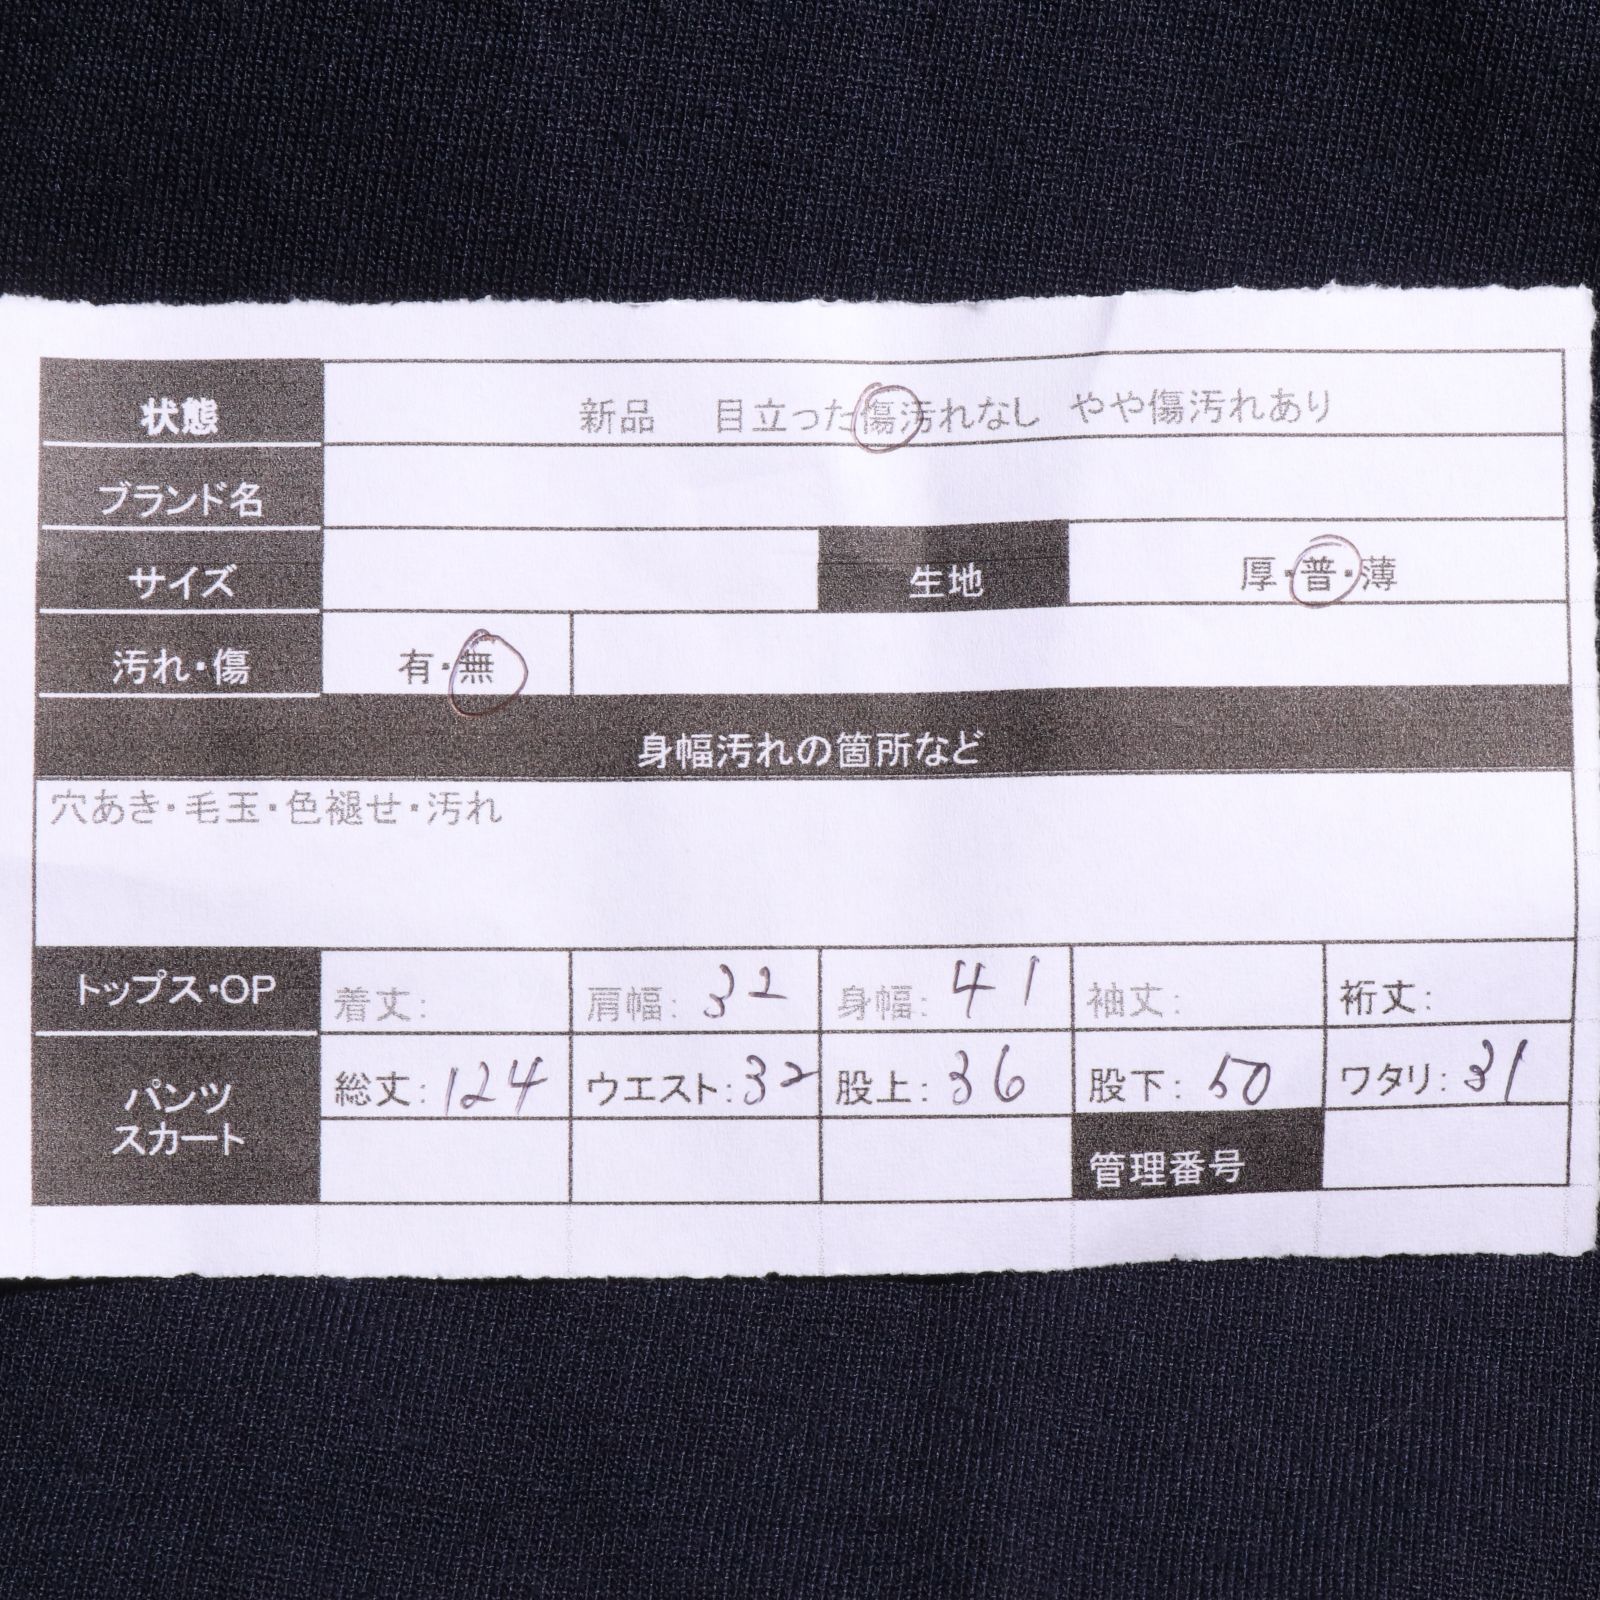 状態 新品 目立った傷汚れなし やや傷汚れあり
ブランド名
サイズ 生地 厚・普・薄
汚れ・傷 有・無
身幅汚れの箇所など
穴あき・毛玉・色褪せ・汚れ
トップス・OP 着丈: 肩幅: 32 身幅: 41 袖丈: 裄丈:
パンツ スカート 総丈: 124 ウエスト: 32 股上: 36 股下: 50 ワタリ: 31
管理番号